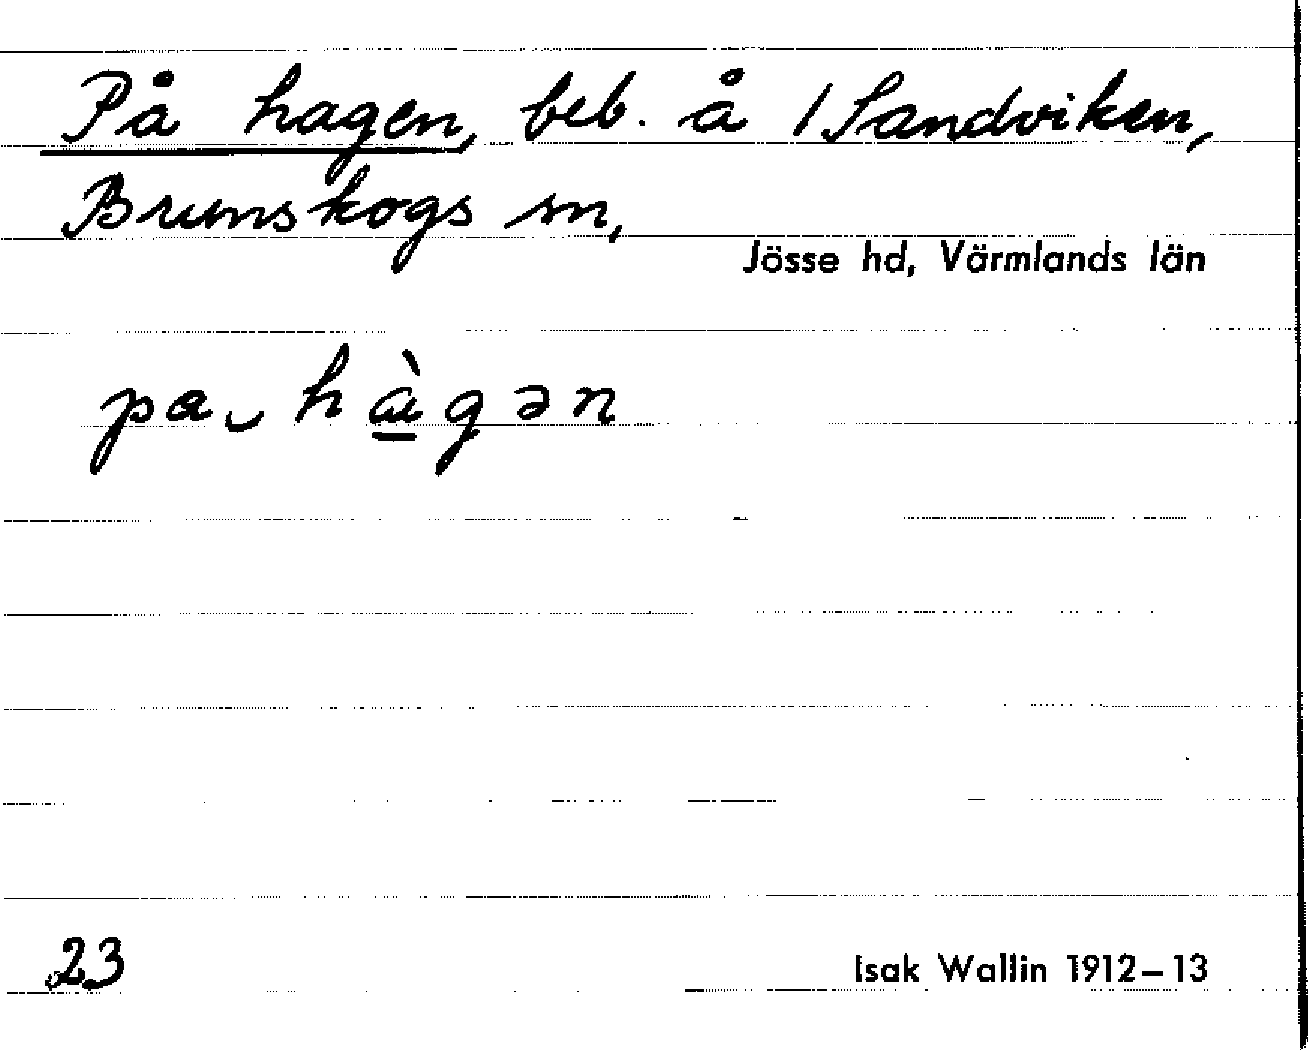 På hagen, beb. å 1 Sandviken,
Brunskogs sn,
Jösse hd, Värmlands län
pa‿hàgən
23
Isak Wallin 1912–13